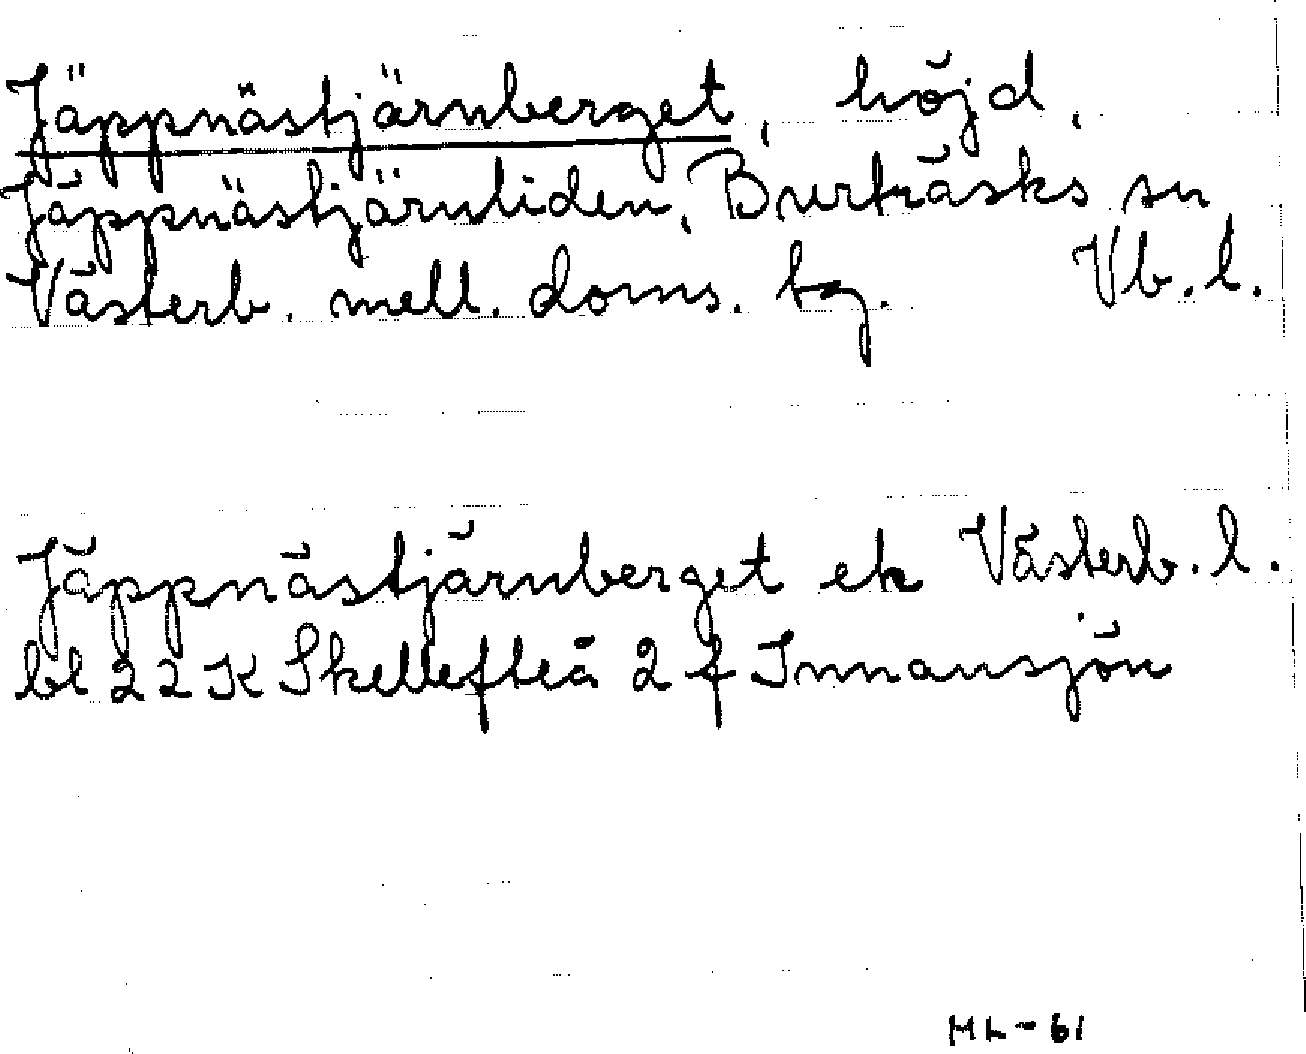 Jäppnästjärnberget, höjd,
Jäppnästjärnliden, Burträsks sn
Västerb. mell. doms. bg. Vb. l.
Jäppnästjärnberget ek Västerb. l.
bl 22 K Skellefteå 2 f Innansjön
ML-61